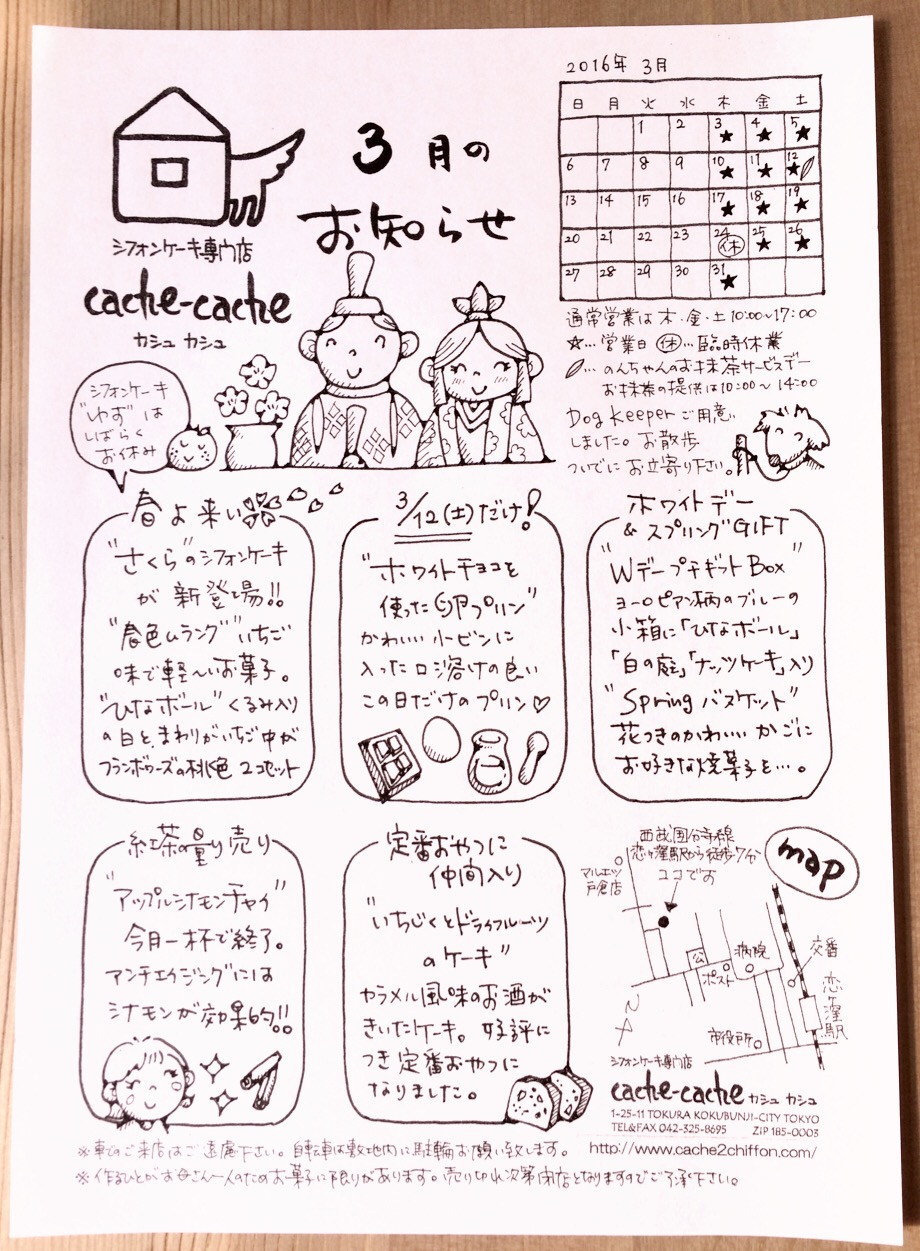 2016年 3月
日 月 火 水 木 金 土
1 2 3★ 4★ 5★
6 7 8 9 10★ 11★ 12★
13 14 15 16 17★ 18★ 19★
20 21 22 23 24休 25★ 26★
27 28 29 30 31★
3月の
お知らせ
シフォンケーキ専門店
cache-cache
カシュ カシュ
通常営業は木・金・土10:00~17:00
★…営業日 休…臨時休業
…のんちゃんのお抹茶サービスデー
お抹茶の提供は10:00~14:00
Dog Keeperご用意
しました。お散歩
ついでにお立寄り下さい。
シフォンケーキ
"ゆず"は
しばらく
お休み
春よ来い
"さくら"のシフォンケーキ
が新登場!!
"春色ムラング"いちご
味で軽〜いお菓子。
"ひなボール"くるみ入り
の白と、まわりがいちご中が
フランボワーズの桃色 2コセット
3/12(土)だけ!
"ホワイトチョコを
使った卵プリン"
かわいい小ビンに
入った口溶けの良い
この日だけのプリン♡
ホワイトデー
&スプリングGIFT
"Wデープチギフト Box"
ヨーロピアン柄のブルーの
小箱に「ひなボール」
「白の庭」「ナッツケーキ」入り
"Spring バスケット"
花つきのかわいい かごに
お好きな焼菓子を…。
紅茶の量り売り
"アップルシナモンチャイ"
今月一杯で終了。
アンチエイジングには
シナモンが効果的!!
定番おやつに
仲間入り
"いちじくとドライフルーツ
のケーキ"
カラメル風味のお酒が
きいたケーキ。好評に
つき定番おやつに
なりました。
map
西武国分寺線
恋ヶ窪駅から徒歩7分
ココです
マルエツ
戸倉店
公
ポスト
病院
交番
恋ヶ窪駅
市役所
シフォンケーキ専門店
cache-cache カシュ カシュ
1-25-11 TOKURA KOKUBUNJI-CITY TOKYO
TEL&FAX 042-325-8695 ZIP 185-0003
http://www.cache2chiffon.com/
※車でのご来店はご遠慮下さい。自転車は敷地内に駐輪お願い致します。
※作るひとがお母さん一人のためお菓子に限りがあります。売り切れ次第閉店となりますのでご了承下さい。